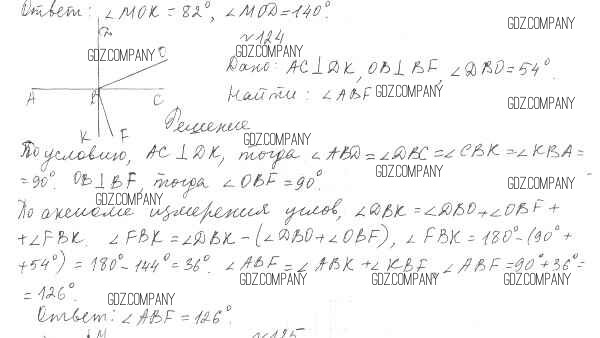 Ответ: ∠MOK = 82°, ∠MOD = 140°.
GDZ.COMPANY
№124
D
O
GDZ.COMPANY
GDZ.COMPANY
Дано: AC⊥DK, OB⊥BF, ∠DBO = 54°.
A B C
Найти: ∠ABF
GDZ.COMPANY
GDZ.COMPANY
K F
Решение
GDZ.COMPANY
По условию, AC⊥DK, тогда ∠ABD = ∠DBC = ∠CBK = ∠KBA =
= 90°. OB⊥BF, тогда ∠OBF = 90°.
GDZ.COMPANY
GDZ.COMPANY
GDZ.COMPANY
По аксиоме измерения углов, ∠DBK = ∠DBO + ∠OBF +
+ ∠FBK. ∠FBK = ∠DBK – (∠DBO + ∠OBF), ∠FBK = 180° – (90° +
+ 54°) = 180° – 144° = 36°. ∠ABF = ∠ABK + ∠KBF, ∠ABF = 90° + 36° =
GDZ.COMPANY
GDZ.COMPANY
GDZ.COMPANY
= 126°.
GDZ.COMPANY
Ответ: ∠ABF = 126°.
M
№125